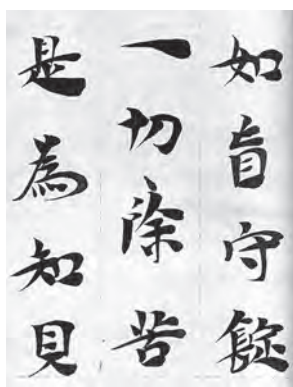 如盲守
一切除苦
是為知見